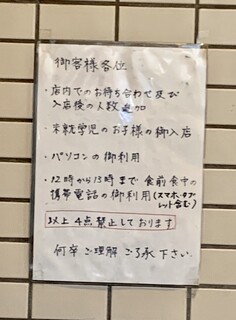 御客様各位
・店内でのお待ち合わせ及び
入店後の人数追加
・未就学児のお子様の御入店
・パソコンの御利用
・12時から13時まで食前食中の
携帯電話の御利用(スマホ・タブ
レット含む)
以上4点禁止しております
何卒ご理解ご了承下さい。